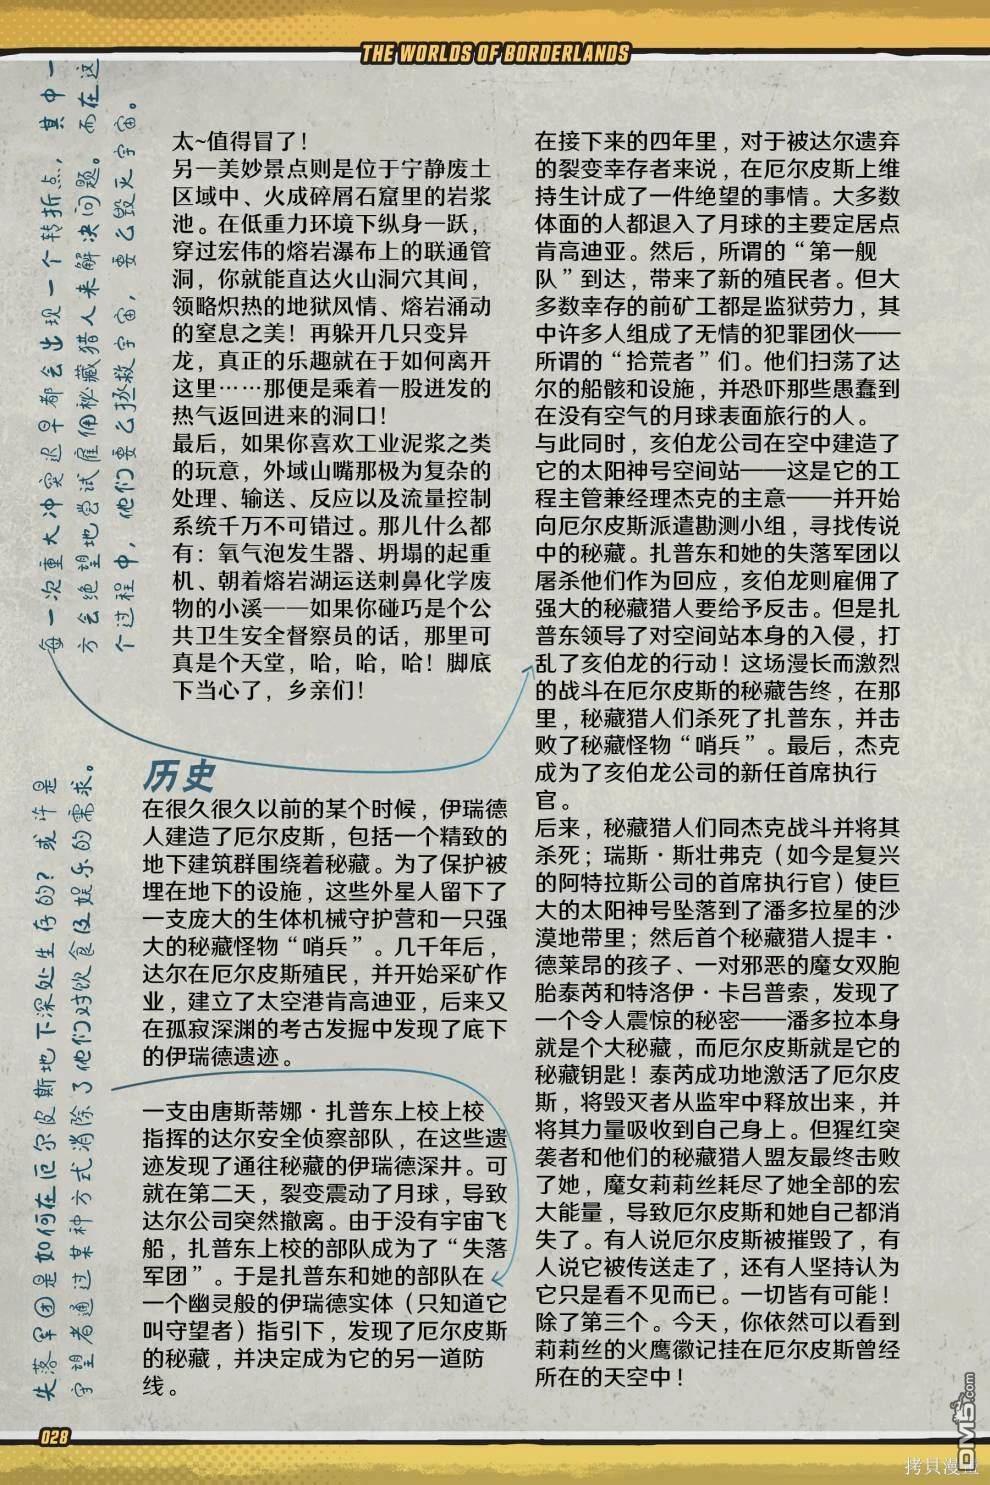 THE WORLDS OF BORDERLANDS
每一次重大冲突迟早都会出现一个转折点，其中一
方会绝望地尝试雇佣秘藏猎人来解决问题。而在这
个过程中，他们要么拯救宇宙，要么毁灭宇宙。
太~值得冒了！
另一美妙景点则是位于宁静废土
区域中、火成碎屑石窟里的岩浆
池。在低重力环境下纵身一跃，
穿过宏伟的熔岩瀑布上的联通管
洞，你就能直达火山洞穴其间，
领略炽热的地狱风情、熔岩涌动
的窒息之美！再躲开几只变异
龙，真正的乐趣就在于如何离开
这里……那便是乘着一股迸发的
热气返回进来的洞口！
最后，如果你喜欢工业泥浆之类
的玩意，外域山嘴那极为复杂的
处理、输送、反应以及流量控制
系统千万不可错过。那儿什么都
有：氧气泡发生器、坍塌的起重
机、朝着熔岩湖运送刺鼻化学废
物的小溪——如果你碰巧是个公
共卫生安全督察员的话，那里可
真是个天堂，哈，哈，哈！脚底
下当心了，乡亲们！
失落军团是如何在厄尔皮斯地下深处生存的？或许是
守望者通过某种方式消除了他们对饮食及娱乐的需求。
历史
在很久很久以前的某个时候，伊瑞德
人建造了厄尔皮斯，包括一个精致的
地下建筑群围绕着秘藏。为了保护被
埋在地下的设施，这些外星人留下了
一支庞大的生体机械守护营和一只强
大的秘藏怪物“哨兵”。几千年后，
达尔在厄尔皮斯殖民，并开始采矿作
业，建立了太空港肯高迪亚，后来又
在孤寂深渊的考古发掘中发现了底下
的伊瑞德遗迹。
一支由唐斯蒂娜·扎普东上校上校
指挥的达尔安全侦察部队，在这些遗
迹发现了通往秘藏的伊瑞德深井。可
就在第二天，裂变震动了月球，导致
达尔公司突然撤离。由于没有宇宙飞
船，扎普东上校的部队成为了“失落
军团”。于是扎普东和她的部队在
一个幽灵般的伊瑞德实体（只知道它
叫守望者）指引下，发现了厄尔皮斯
的秘藏，并决定成为它的另一道防
线。
在接下来的四年里，对于被达尔遗弃
的裂变幸存者来说，在厄尔皮斯上维
持生计成了一件绝望的事情。大多数
体面的人都退入了月球的主要定居点
肯高迪亚。然后，所谓的“第一舰
队”到达，带来了新的殖民者。但大
多数幸存的前矿工都是监狱劳力，其
中许多人组成了无情的犯罪团伙——
所谓的“拾荒者”们。他们扫荡了达
尔的船骸和设施，并恐吓那些愚蠢到
在没有空气的月球表面旅行的人。
与此同时，亥伯龙公司在空中建造了
它的太阳神号空间站——这是它的工
程主管兼经理杰克的主意——并开始
向厄尔皮斯派遣勘测小组，寻找传说
中的秘藏。扎普东和她的失落军团以
屠杀他们作为回应，亥伯龙则雇佣了
强大的秘藏猎人要给予反击。但是扎
普东领导了对空间站本身的入侵，打
乱了亥伯龙的行动！这场漫长而激烈
的战斗在厄尔皮斯的秘藏告终，在那
里，秘藏猎人们杀死了扎普东，并击
败了秘藏怪物“哨兵”。最后，杰克
成为了亥伯龙公司的新任首席执行
官。
后来，秘藏猎人们同杰克战斗并将其
杀死；瑞斯·斯壮弗克（如今是复兴
的阿特拉斯公司的首席执行官）使巨
大的太阳神号坠落到了潘多拉星的沙
漠地带里；然后首个秘藏猎人提丰·
德莱昂的孩子、一对邪恶的魔女双胞
胎泰芮和特洛伊·卡吕普索，发现了
一个令人震惊的秘密——潘多拉本身
就是个大秘藏，而厄尔皮斯就是它的
秘藏钥匙！泰芮成功地激活了厄尔皮
斯，将毁灭者从监牢中释放出来，并
将其力量吸收到自己身上。但猩红突
袭者和他们的秘藏猎人盟友最终击败
了她，魔女莉莉丝耗尽了她全部的宏
大能量，导致厄尔皮斯和她自己都消
失了。有人说厄尔皮斯被摧毁了，有
人说它被传送走了，还有人坚持认为
它只是看不见而已。一切皆有可能！
除了第三个。今天，你依然可以看到
莉莉丝的火鹰徽记挂在厄尔皮斯曾经
所在的天空中！
028
拷貝漫畫
DM5.com